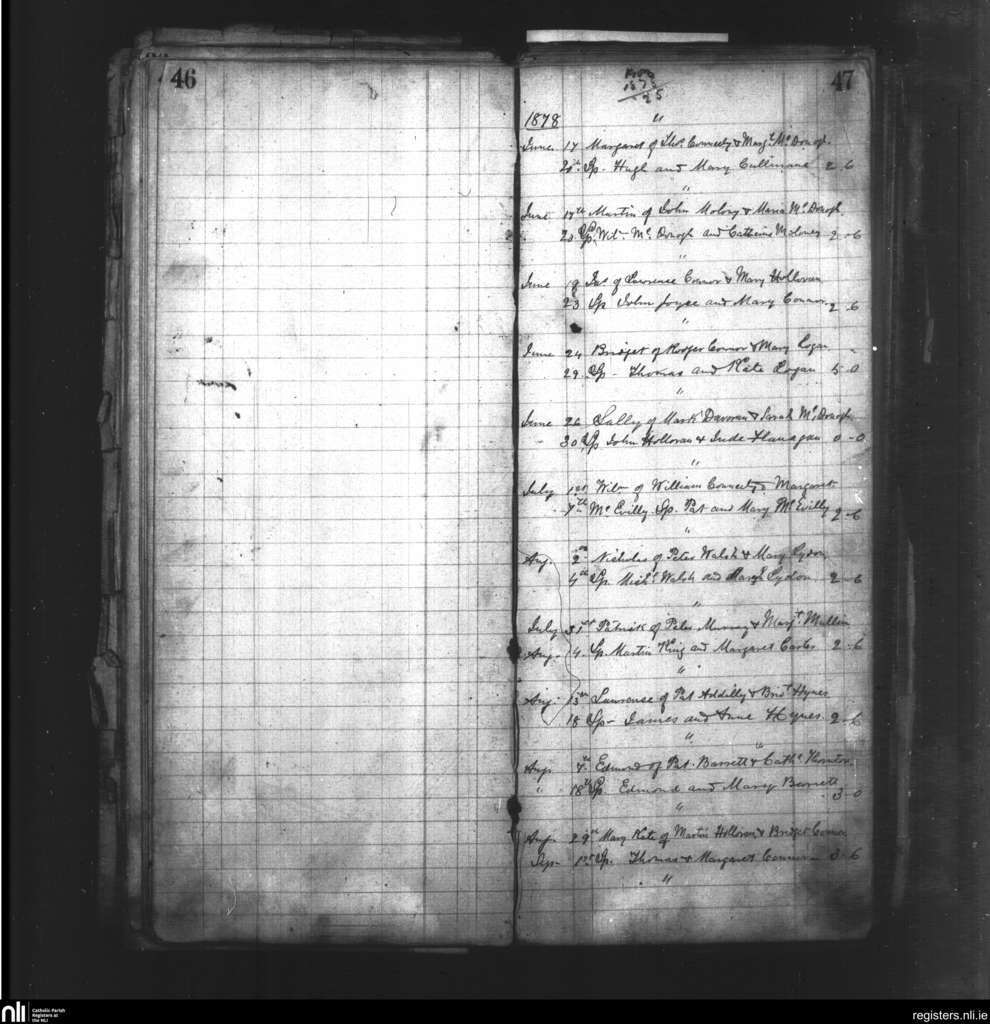 46
47
1900
1875
25
1878
"
June 17 Margaret of Thos. Conneely & Margt. Mc Donogh
20th Sp. Hugh and Mary Cullinane 2-6
"
June 17th Martin of John Molony & Maria Mc Donogh
20 Sp. Wilm. Mc Donogh and Catherine Moloney 2-6
"
June 9 Jas of Lawrence Connor & Mary Holloran
23 Sp John Joyce and Mary Connor 2 6
"
June 24 Bridget of Rodger Connor & Mary Logan
29 Sp- Thomas and Kate Logan 5-0
"
June 26 Sally of Mark Davoran & Sarah Mc Donogh
30 Sp John Holloran & Jude Flanagan 0-0
"
July 1st Wilm of William Conneely & Margaret
7th Mc Evilly Sp. Pat and Mary Mc Evilly 2-6
"
Aug. 2nd Nicholas of Peter Walsh & Mary Lydon
4th Sp. Michl. Walsh and Lydon 2-6
"
July 31st Patrick of Peter Murray & Margt. Mullin
Aug. 14. Sp. Martin King and Margaret 2-6
"
Aug 13th Lawrence of Pat Ardilly & Bridt Hynes
18 Sp- James and Anne Hynes 2-6
"
Aug. 7th Edmond of Pat. Barrett & Cathe. Thornton
" 18th Sp. Edmond and Mary Barrett
3-0
"
Aug. 29th Mary Kate of Martin Holloran & Bridget Connor
Sep. 1st Sp. Thomas & Margaret 3-6
"
nli
Catholic Parish
Registers at
the NLI
registers.nli.ie